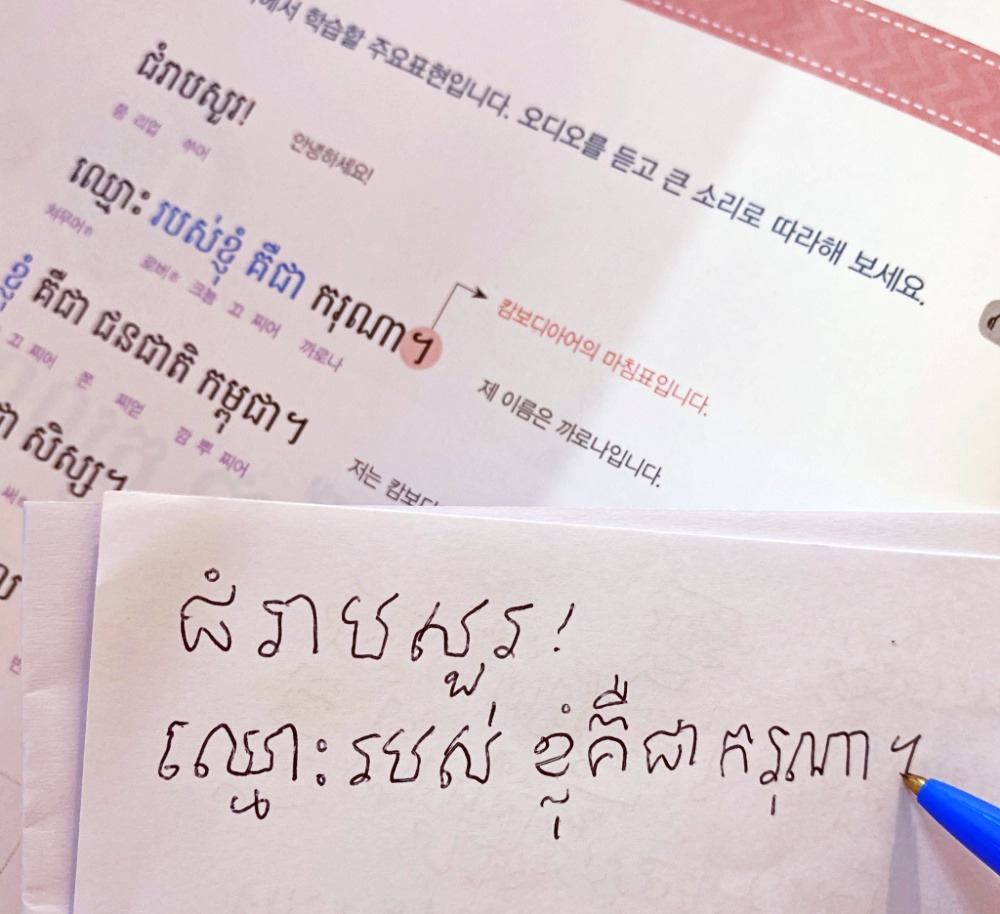 에서 학습할 주요표현입니다. 오디오를 듣고 큰 소리로 따라해 보세요.
ជំរាបសួរ!
쭘 리업 쑤어
안녕하세요!
ឈ្មោះ របស់ខ្ញុំ គឺជា ករុណា។
처무어ㅎ 로버ㅎ 크뇸 끄 찌어 까로나
캄보디아어의 마침표입니다.
제 이름은 까로나입니다.
ខ្ញុំ គឺជា ជនជាតិ កម្ពុជា។
끄 찌어 쭌 찌얻 깜 뿌 찌어
저는 캄보디
ជា សិស្ស។
써ㅎ
ជំរាបសួរ!
ឈ្មោះ របស់ ខ្ញុំគឺជា ករុណា។